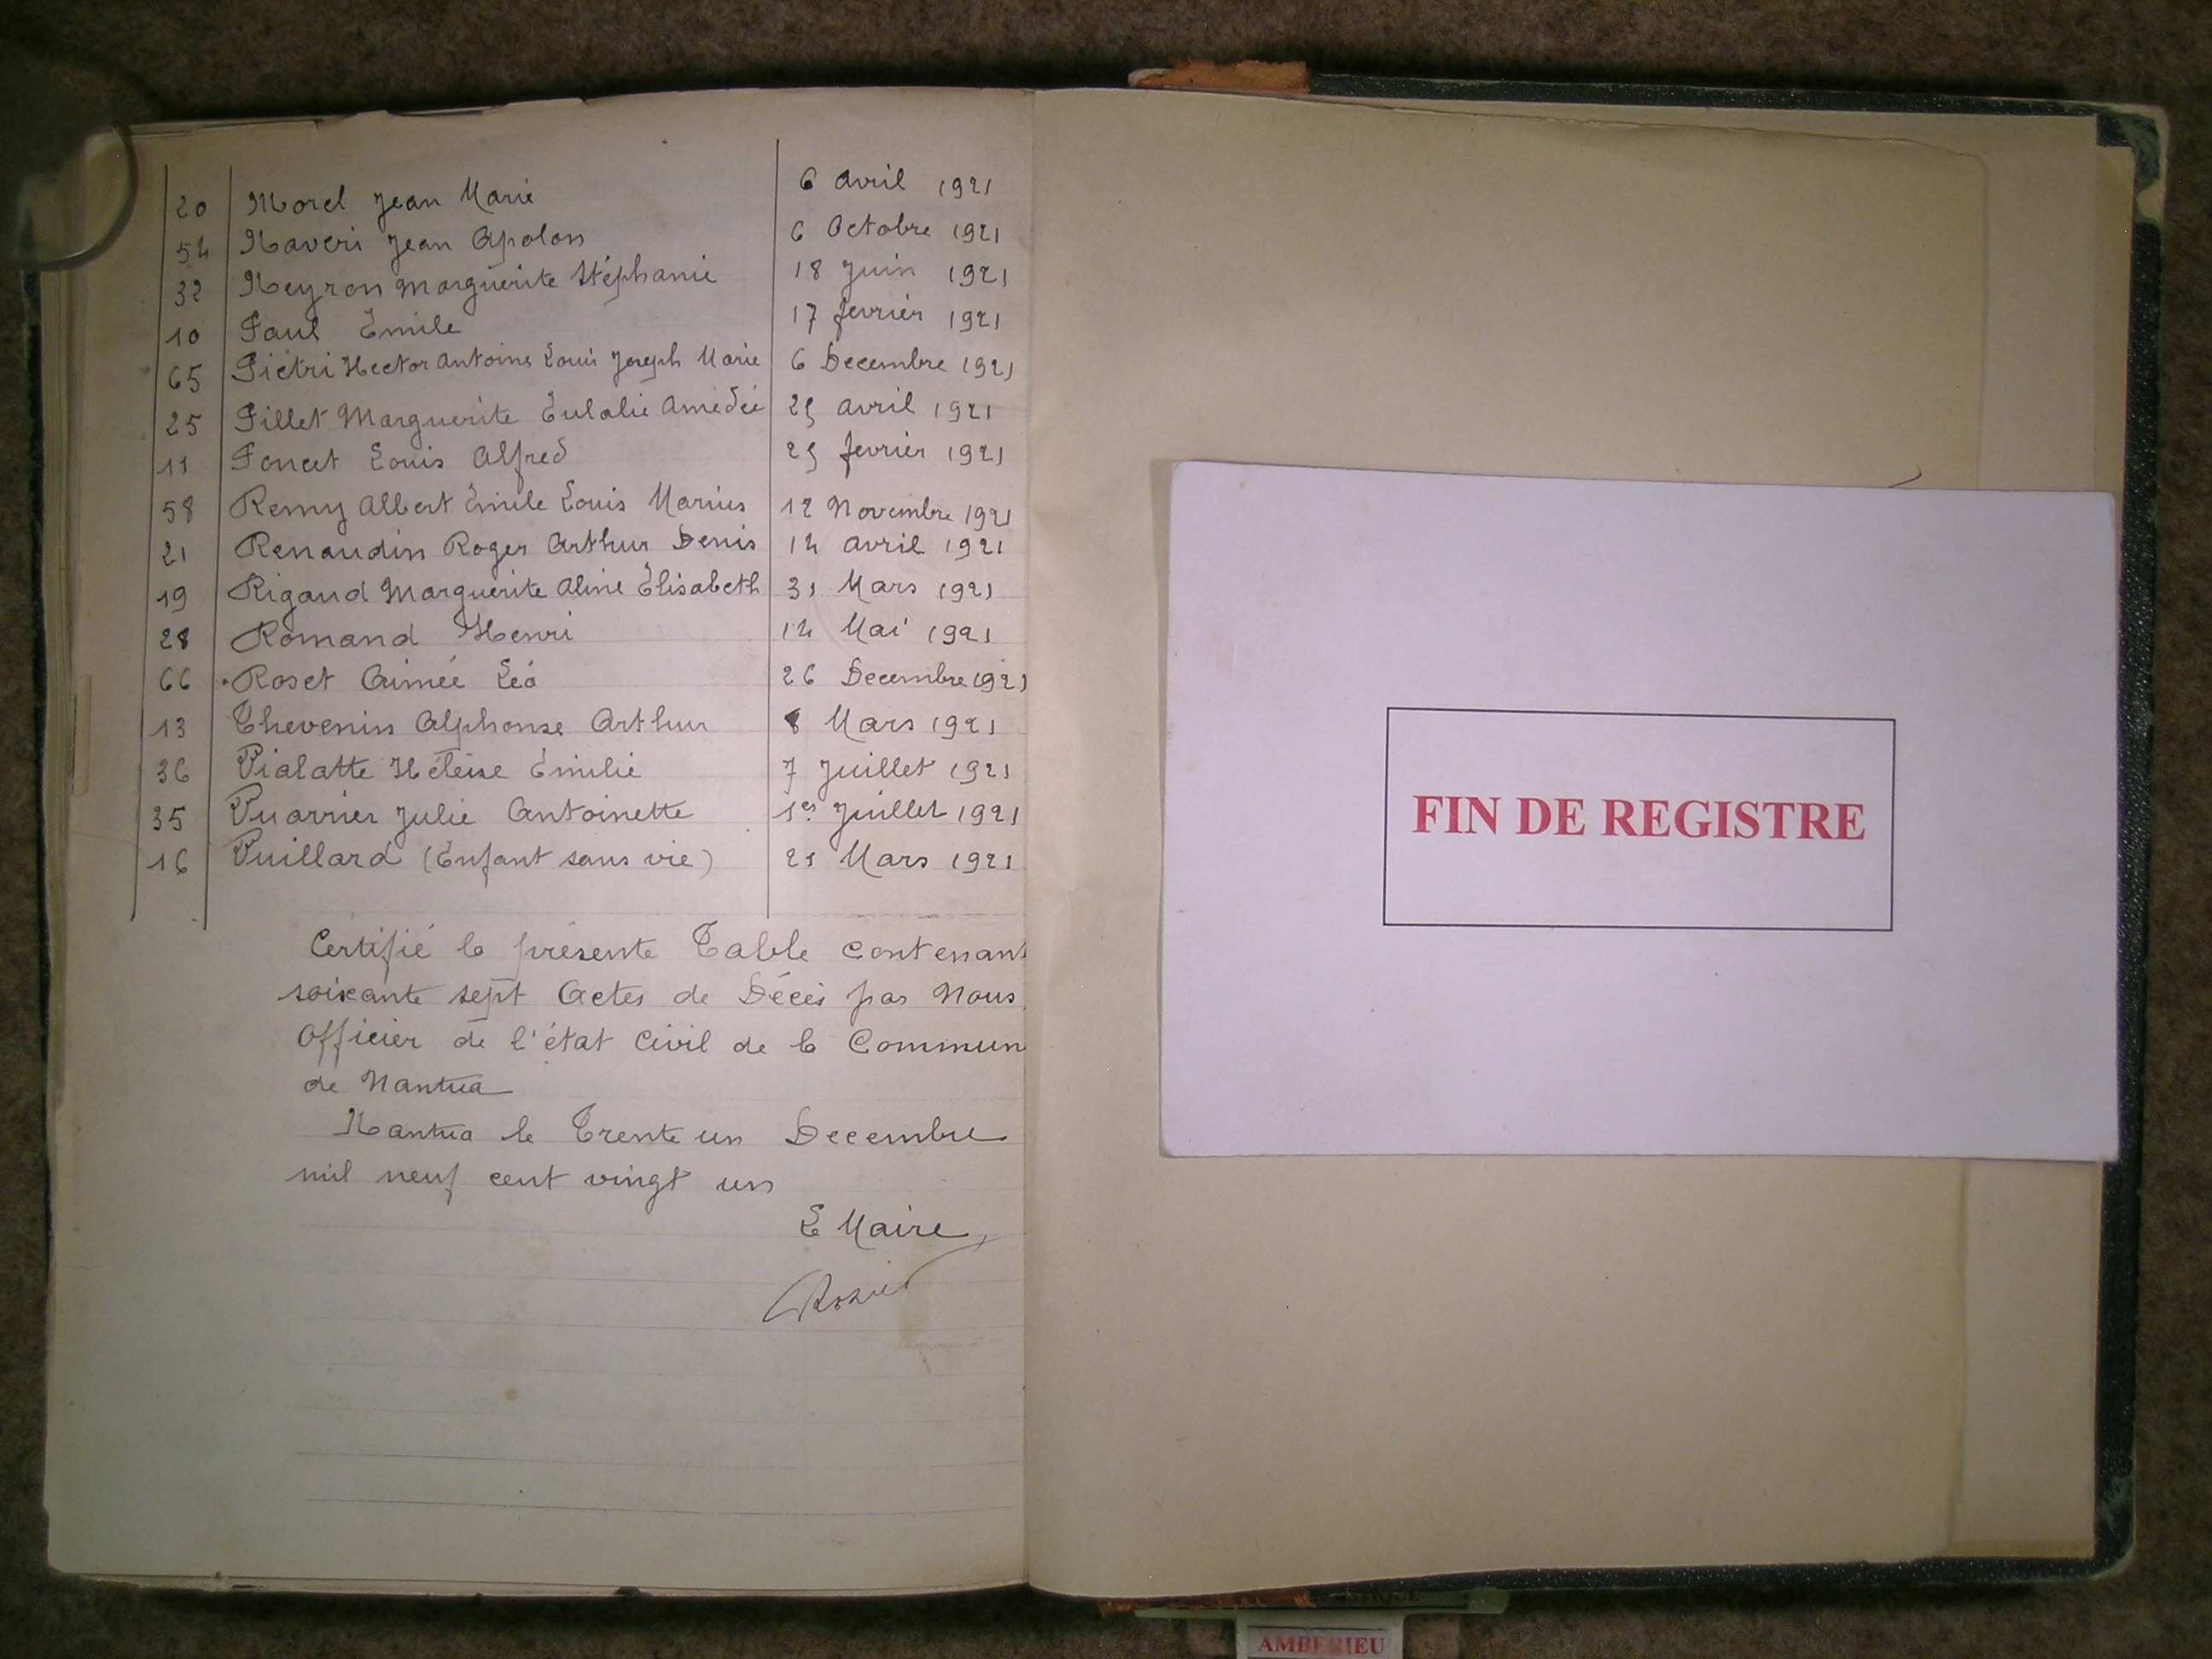 20 Morel Jean Marie 6 avril 1921
54 Naveri Jean Apolon 6 Octobre 1921
32 Neyron Marguerite Stéphanie 18 Juin 1921
10 Paul Émile 17 fevrier 1921
65 Piétri Hector Antoine Louis Joseph Marie 6 Decembre 1921
25 Pillet Marguerite Eulalie Amédée 25 avril 1921
11 Poncet Louis Alfred 25 fevrier 1921
58 Remy Albert Émile Louis Marius 12 Novembre 1921
21 Renaudin Roger Arthur Denis 14 avril 1921
19 Rigaud Marguerite Aline Élisabeth 31 Mars 1921
28 Romand Henri 14 Mai 1921
66 Roset Aimée Léa 26 Decembre 1921
13 Thevenin Alphonse Arthur 8 Mars 1921
36 Vialatte Héloïse Émilie 7 Juillet 1921
35 Vuarrier Julie Antoinette 1er Juillet 1921
16 Vuillard (Enfant sans vie) 21 Mars 1921
Certifié la présente Table contenant
soixante sept Actes de Décès par Nous
Officier de l'état Civil de la Commun
de Nantua
Nantua le Trente un Decembre
mil neuf cent vingt un
Le Maire
FIN DE REGISTRE
AMBERIEU